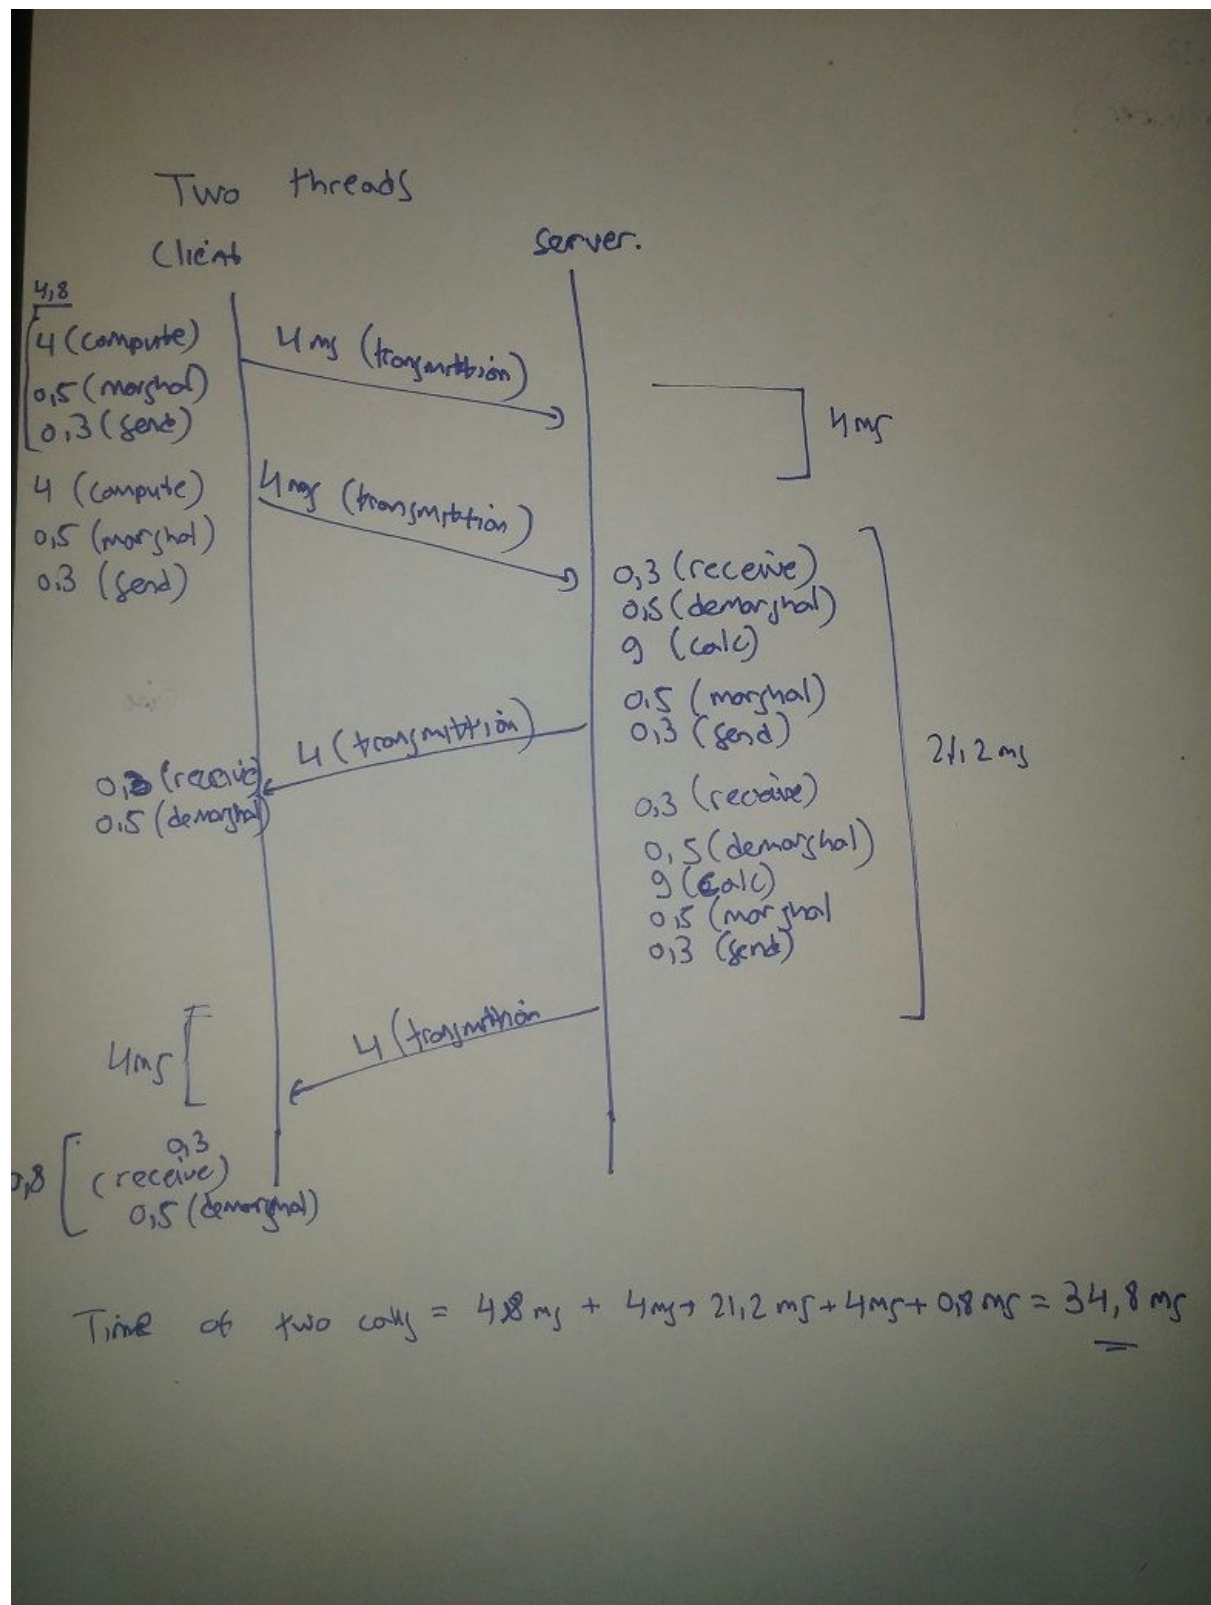 Two threads
Client
server.
4,8
4 (compute)
0,5 (marshal)
0,3 (send)
4 ms (transmittion)
4 ms
4 (compute)
0,5 (marshal)
0,3 (send)
4 ms (transmittion)
0,3 (receive)
0,5 (demarshal)
9 (calc)
0,5 (marshal)
0,3 (send)
4 (transmittion)
0,3 (receive)
0,5 (demarshal)
21,2 ms
0,3 (receive)
0,5 (demarshal)
9 (calc)
0,5 (marshal
0,3 (send)
4 (transmittion
4ms
0,8
0,3
(receive)
0,5 (demarshal)
Time of two calls = 4,8 ms + 4ms + 21,2 ms + 4ms + 0,8 ms = 34,8 ms